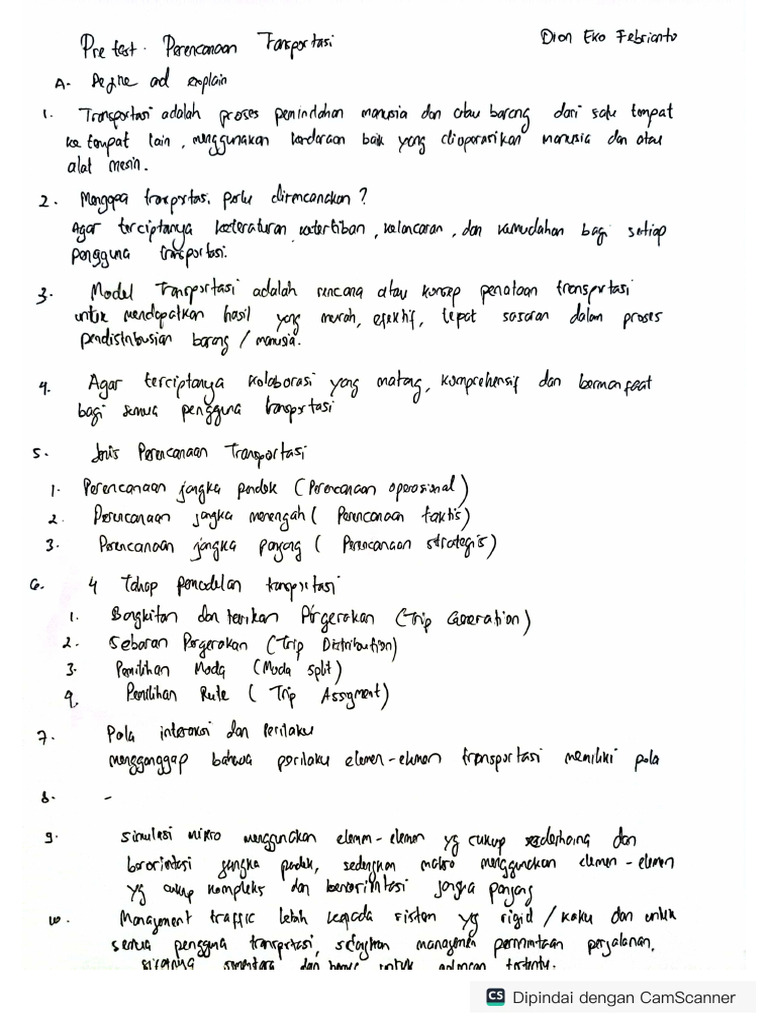 Pre test. Perencanaan Tansportasi
Dion Eko Febrianto
A. Define ad explain
1. Transportasi adalah proses pemindahan manusia dan atau barang dari satu tempat
ke tempat lain, menggunakan kendaraan baik yang dioperasikan manusia dan atau
alat mesin.
2. Mengapa transportasi perlu direncanakan ?
Agar terciptanya keteraturan, ketertiban, kelancaran, dan kemudahan bagi setiap
pengguna transportasi.
3. Model Transportasi adalah rencana atau konsep penataan transportasi
untuk mendapatkan hasil yang murah, efektif, tepat sasaran dalam proses
pendistribusian barang / manusia.
4. Agar terciptanya kolaborasi yang matang, komprehensif dan bermanfaat
bagi semua pengguna transportasi
5. Jenis Perencanaan Transportasi
1. Perencanaan jangka pendek (Perencanaan operasional)
2. Perencanaan jangka menengah ( Perencanaan taktis)
3. Perencanaan jangka panjang ( Perencanaan strategis)
6. 4 Tahap pemodelan transportasi
1. Bangkitan dan tarikan Pergerakan (Trip Generation)
2. Sebaran Pergerakan (Trip Distribution)
3. Pemilihan Moda (Moda split)
4. Pemilihan Rute ( Trip Assigment)
7. Pola interaksi dan Perilaku
menggangap bahwa perilaku elemen-elemen transportasi memiliki pola
8. -
9. Simulasi mikro menggunakan elemen-elemen yg cukup sederhana dan
berorientasi jangka pendek, sedangkan makro menggunakan elemen-elemen
yg cukup kompleks dan berorientasi jangka panjang
10. Management traffic lebih kepada sistem yg rigid / kaku dan untuk
semua pengguna transportasi, sedangkan managemen permintaan perjalanan,
sifatnya sementara dan hanya untuk golongan tertentu.
CS Dipindai dengan CamScanner